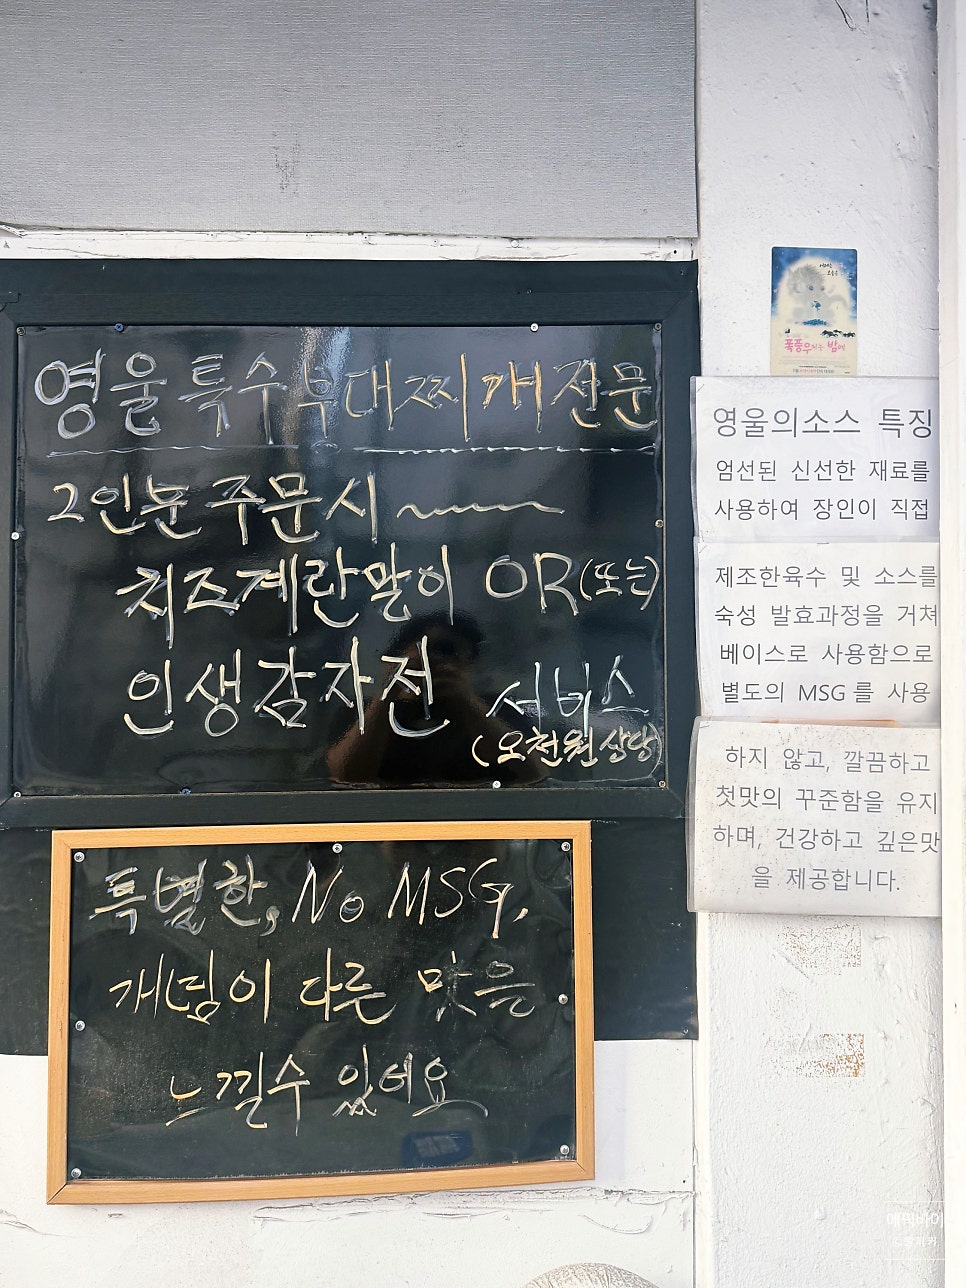 영울특수부대찌개전문
2인분 주문시
치즈계란말이 OR(또는)
인생감자전 서비스
(오천원상당)
특별한, No MSG,
개념이 다른 맛을
느낄수 있어요
폭풍우치는 밤에
영울의소스 특징
엄선된 신선한 재료를
사용하여 장인이 직접
제조한육수 및 소스를
숙성 발효과정을 거쳐
베이스로 사용함으로
별도의 MSG 를 사용
하지 않고, 깔끔하고
첫맛의 꾸준함을 유지
하며, 건강하고 깊은맛
을 제공합니다.